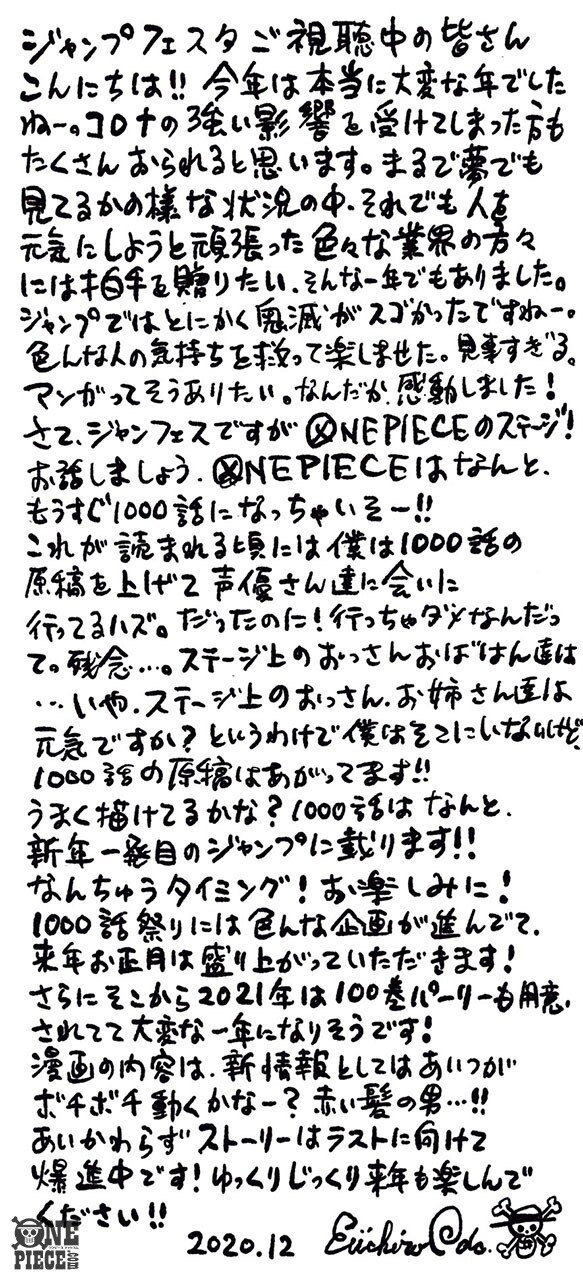 ジャンプフェスタご視聴中の皆さん
こんにちは!! 今年は本当に大変な年でした
ねー。コロナの強い影響を受けてしまった方も
たくさんおられると思います。まるで夢でも
見てるかの様な状況の中、それでも人を
元気にしようと頑張った色々な業界の方々
には拍手を贈りたい、そんな一年でもありました。
ジャンプではとにかく鬼滅がスゴかったですねー。
色んな人の気持ちを救って楽しませた。見事すぎる。
マンガってそうありたい。なんだか感動しました!
さて、ジャンフェスですがONEPIECEのステージ!
お話しましょう、ONEPIECEはなんと、
もうすぐ1000話になっちゃいそー!!
これが読まれる頃には僕は1000話の
原稿を上げて声優さん達に会いに
行ってるハズ。だったのに!行っちゃダメなんだっ
て。残念…。ステージ上のおっさんおばはん達は
…いや、ステージ上のおっさん、お姉さん達は
元気ですか?というわけで僕はそこにいないけど、
1000話の原稿はあがってます!!
うまく描けてるかな?1000話はなんと、
新年一発目のジャンプに載ります!!
なんちゅうタイミング!お楽しみに!
1000話祭りには色んな企画が進んでて、
来年お正月は盛り上がっていただきます!
さらにそこから2021年は100巻パーリーも用意
されてて大変な一年になりそうです!
漫画の内容は、新情報としてはあいつが
ボチボチ動くかなー?赤い髪の男…!!
あいかわらずストーリーはラストに向けて
爆進中です!ゆっくりじっくり来年も楽しんで
ください!!
2020.12 Eiichiro Oda.
ONE
PIECE.COM